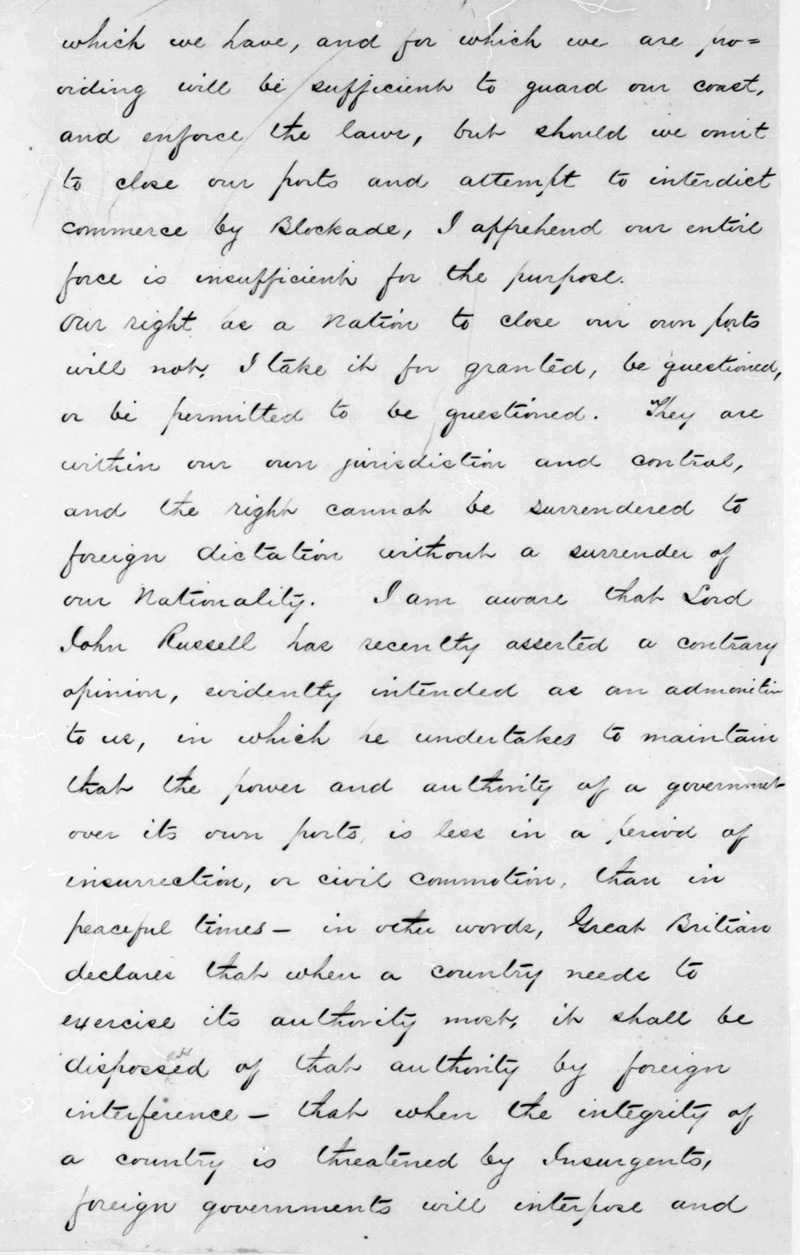 which we have, and for which we are pro=
viding will be sufficient to guard our coast,
and enforce the laws, but should we omit
to close our ports and attempt to interdict
commerce by Blockade, I apprehend our entire
force is insufficient for the purpose.
Our right as a Nation to close our own ports
will not, I take it for granted, be questioned,
or be permitted to be questioned. They are
within our own jurisdiction and control,
and the right cannot be surrendered to
foreign dictation without a surrender of
our Nationality. I am aware that Lord
John Russell has recently asserted a contrary
opinion, evidently intended as an admonition
to us, in which he undertakes to maintain
that the power and authority of a government
over its own ports, is less in a period of
insurrection, or civil commotion, than in
peaceful times - in other words, Great Britian
declares that when a country needs to
exercise its authority most, it shall be
dispossed of that authority by foreign
interference - that when the integrity of
a country is threatened by Insurgents,
foreign governments will interpose and